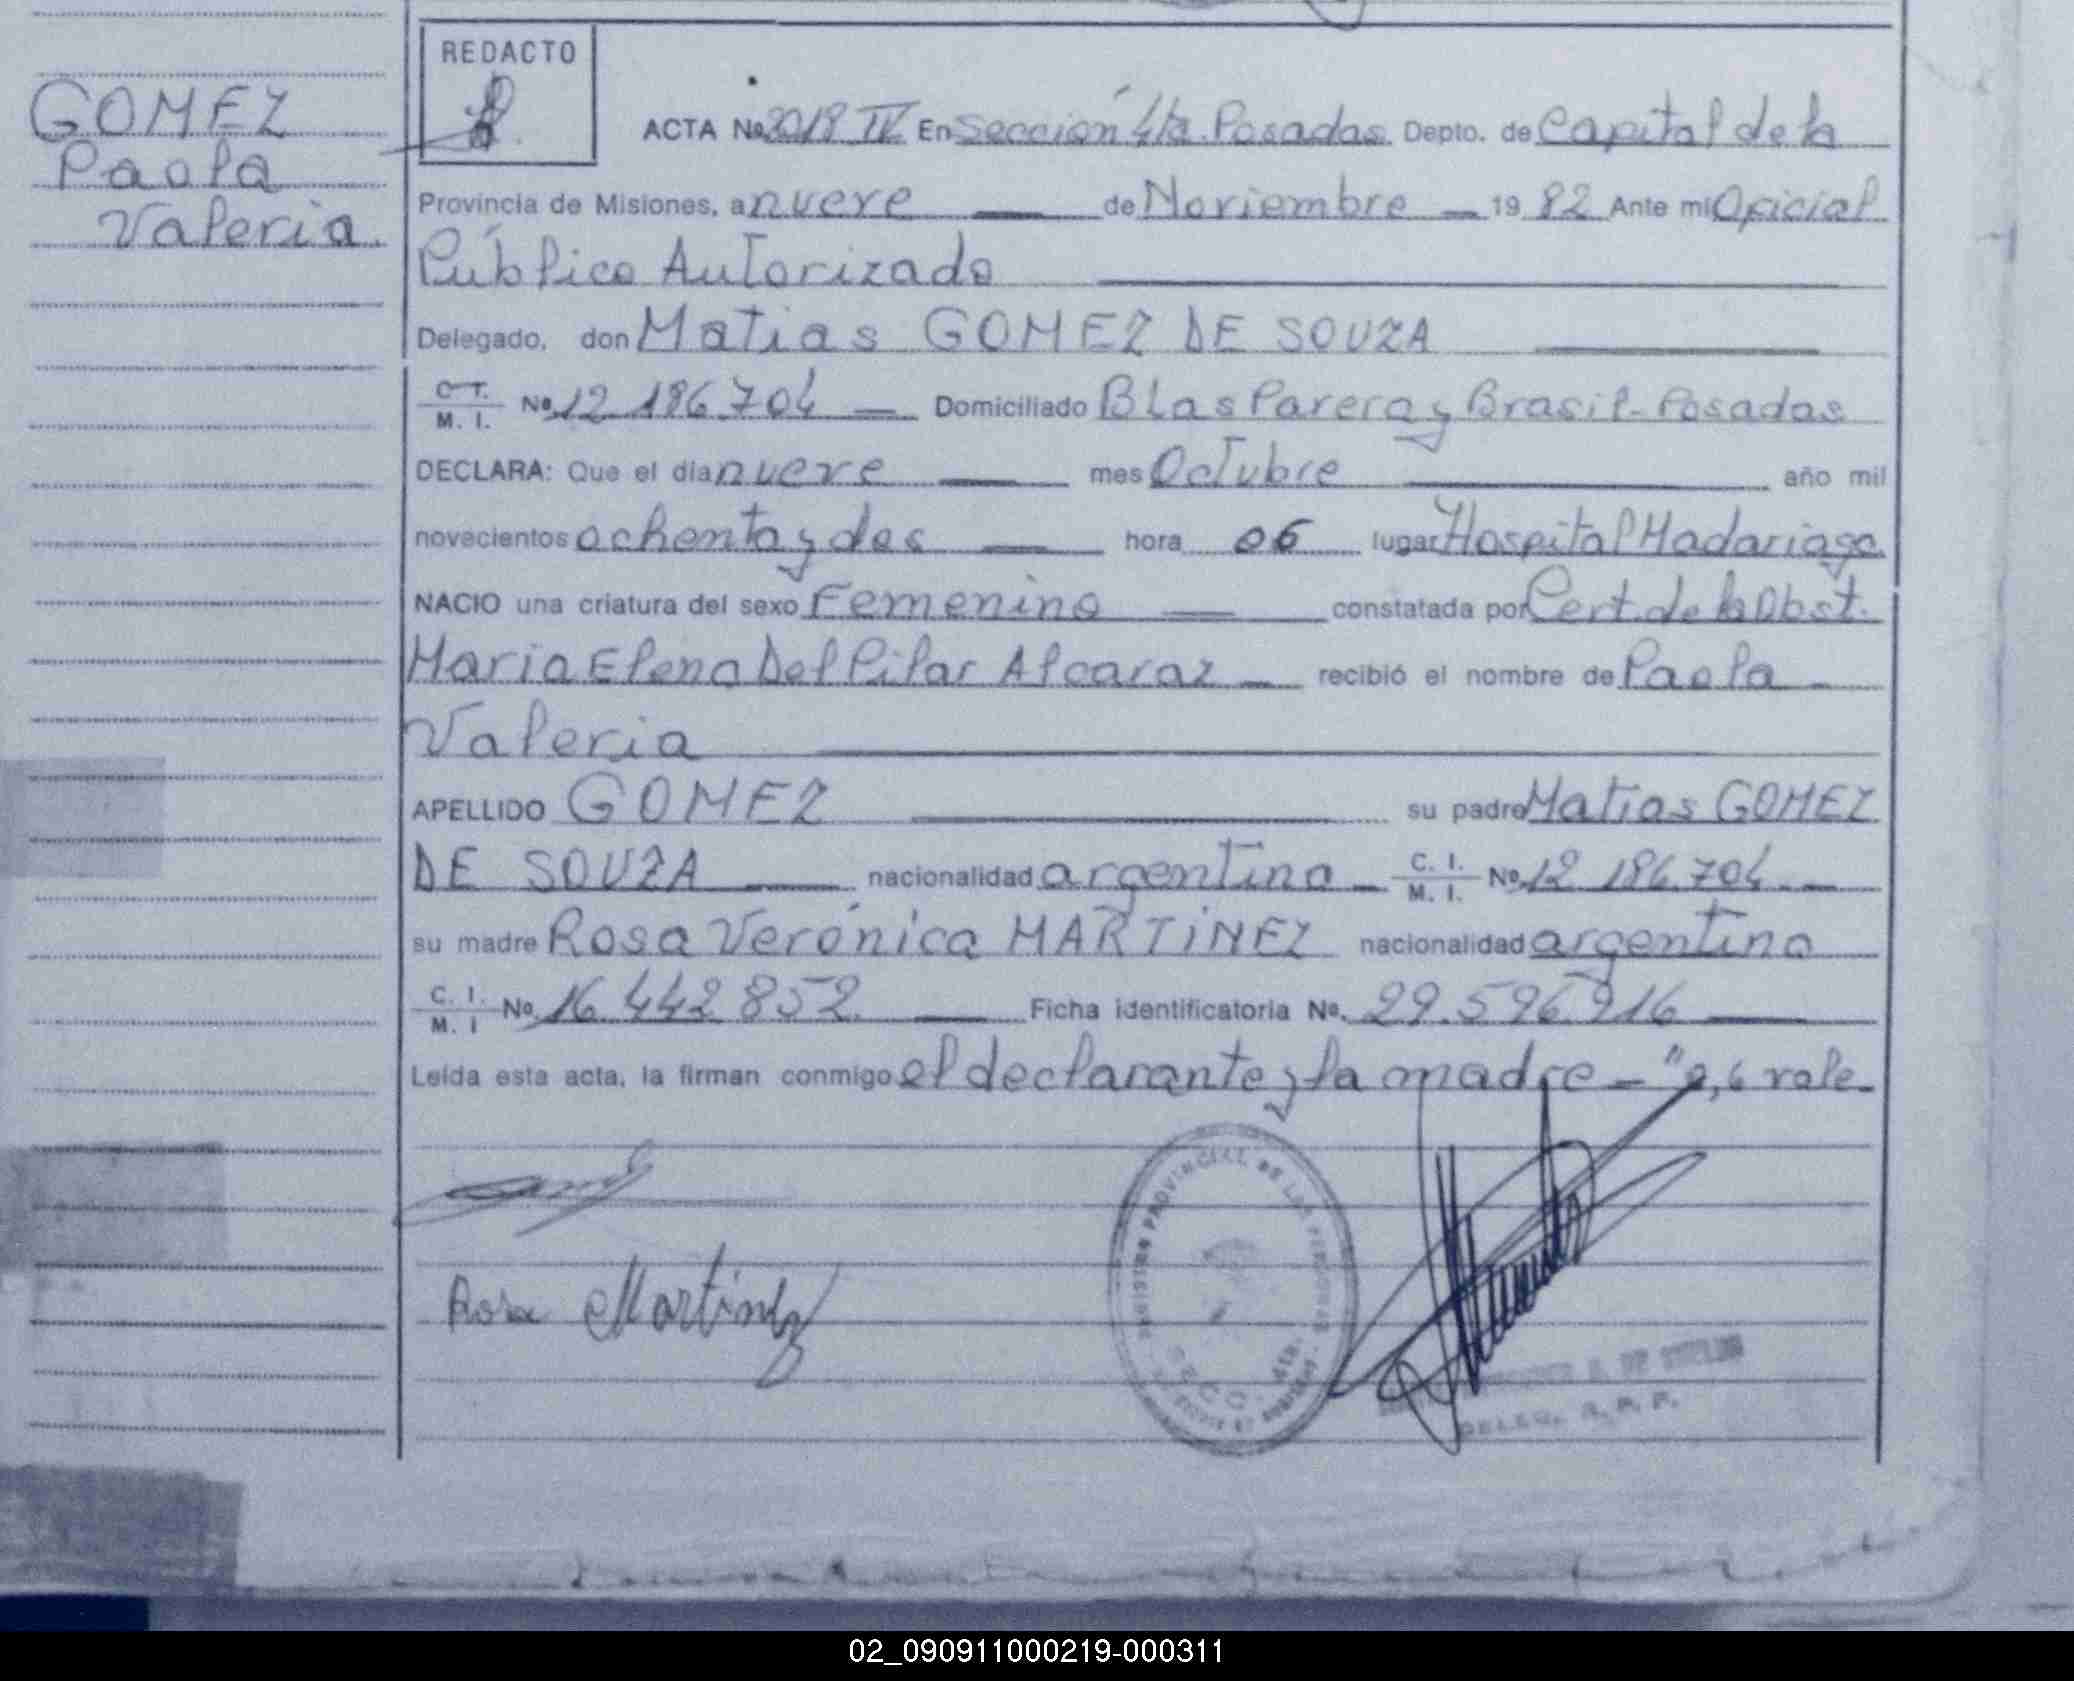 GOMEZ
Paola
Valeria
REDACTO
ACTA Nº 2018 IV En Sección 4ta. Posadas Depto. de Capital de la
Provincia de Misiones, a nueve de Noviembre 19 82 Ante mi Oficial
Público Autorizado
Delegado, don Matias GOMEZ DE SOUZA
C. I. M. I. Nº 12.186.704 Domiciliado Blas Parera y Brasil - Posadas
DECLARA: Que el día nueve mes Octubre año mil
novecientos ochenta y dos hora 06 lugar Hospital Madariaga
NACIO una criatura del sexo Femenino constatada por Cert. de la Obst.
Maria Elena Del Pilar Alcaraz recibió el nombre de Paola
Valeria
APELLIDO GOMEZ su padre Matias GOMEZ
DE SOUZA nacionalidad argentino C. I. M. I. Nº 12.186.704
su madre Rosa Verónica MARTINEZ nacionalidad argentina
C. I. M. I Nº 16.442.852 Ficha identificatoria Nº. 29.596.916
Leída esta acta, la firman conmigo el declarante y la madre - vale-
Rosa Martinez
REGISTRO PROVINCIAL DE LAS PERSONAS
SECC. 4ta.
DELEG. R. P. P.
02_090911000219-000311